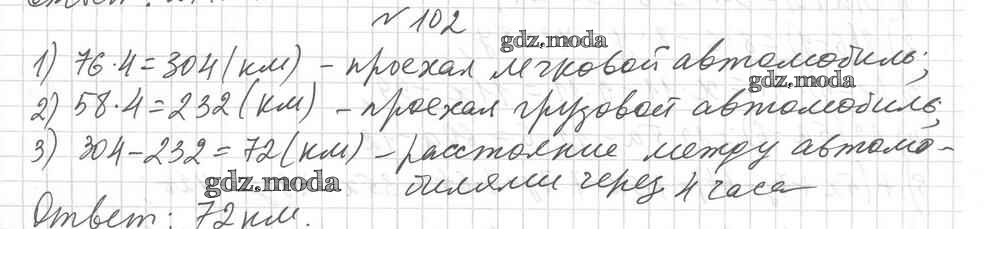 № 102
1) 76·4=304(км) - проехал легковой автомобиль;
2) 58·4=232(км) - проехал грузовой автомобиль;
3) 304-232=72(км) - расстояние между автомо-
билями через 4 часа
Ответ: 72км.
gdz.moda
gdz.moda
gdz.moda